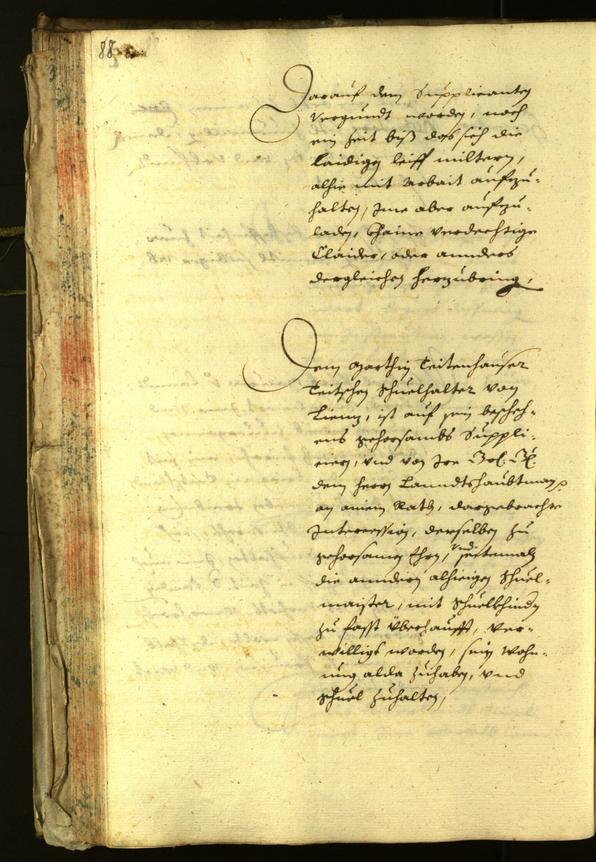 88
Darauf dem Supplicanten
vergundt worden, noch
ein Zeit biß das sich die
laidigen leiff miltern,
alhie mit Arbait aufzu-
halten, Ime aber aufzu-
laden, khaine verdechtige
Claider, oder annders
dergleichen herzubring,
Dem Marthin Teitenhauser
Teitschen Schuelhalter von
Lienz, ist auf sein bescheh-
ens gehorsambs Suppli-
ciern, und von Ir
dem herrn Lanndtshaubtman
an ainem Rath, dargebrachte
Intercession, derselben zu
gehorsamen Ehrn, und seitenmaln
die anndern alhieigen Schuel-
maister, mit Schuelkhinden
zu fasst überhaufft, ver-
willigt worden, sein Wohn-
ung alda zuhaben, und
Schuel zuhalten,